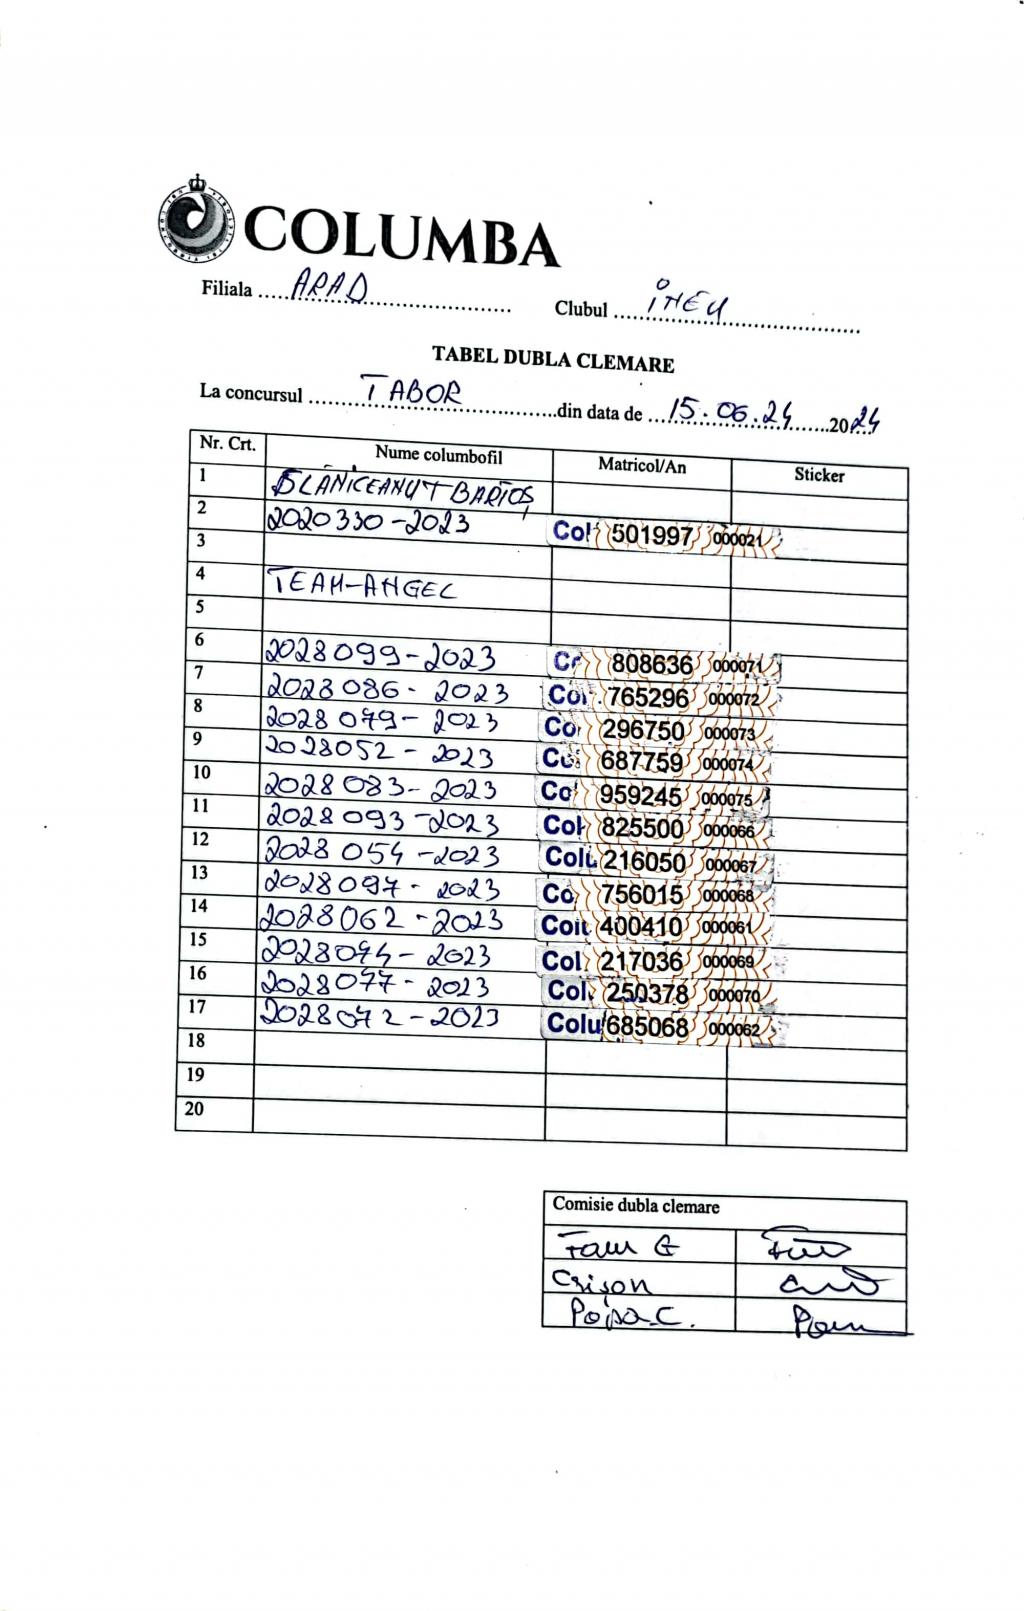 COLUMBA
Filiala ..... ARAD ..... Clubul ..... INEU .....
TABEL DUBLA CLEMARE
La concursul ..... TABOR ..... din data de ... 15.06.24 ..... 2024
Nr. Crt. Nume columbofil Matricol/An Sticker
1 BLĂNICEANUT BARTOȘ
2 2020330-2023 501997 000021
3
4 TEAM-ANGEL
5
6 2028099-2023 808636 000071
7 2028086-2023 765296 000072
8 2028079-2023 296750 000073
9 2028052-2023 687759 000074
10 2028083-2023 959245 000075
11 2028093-2023 825500 000066
12 2028054-2023 216050 000067
13 2028097-2023 756015 000068
14 2028062-2023 400410 000061
15 2028074-2023 217036 000069
16 2028077-2023 250378 000070
17 2028072-2023 685068 000062
18
19
20
Comisie dubla clemare
Crișon
Popa C.